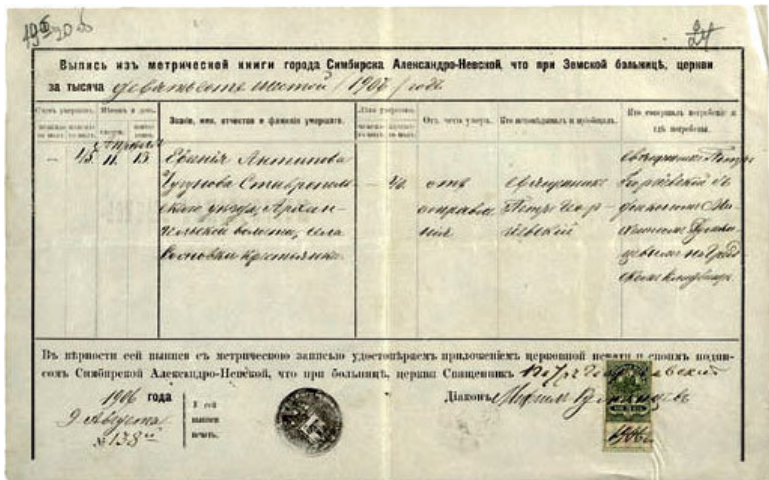 24
Выпись изъ метрической книги города Симбирска Александро-Невской, что при Земской больницѣ, церкви
за тысяча девятьсотъ шестой /1906/ годъ
Мѣсяцъ и день.
Званіе, имя, отчество и фамилія умершаго.
Лѣта умершаго.
Отъ чего умеръ.
Кто исповѣдывалъ и пріобщалъ.
Кто совершалъ погребеніе и
гдѣ погребены.
Апрѣль
— 45 11. 13
Евгенія Антипова
Чугунова Ставрополь-
скаго уѣзда, Архан-
гельской волости, села
Сосновки крестьянка.
— 40.
отъ
отравле-
нія
священникъ
Петръ Геор-
гіевскій
священникъ Петръ
Георгіевскій съ
діакономъ Ми-
хаиломъ Румян-
цевымъ на Город-
скомъ кладбищѣ.
Въ вѣрности сей выписи съ метрическою записью удостовѣряемъ приложеніемъ церковной печати и своимъ подпи-
сомъ Симбирской Александро-Невской, что при больницѣ, церкви Священникъ Петръ Георгіевскій
Діаконъ Михаилъ Румянцевъ
1906 года
9 Августа
№ 138
У сей
выписи
печать.
1906